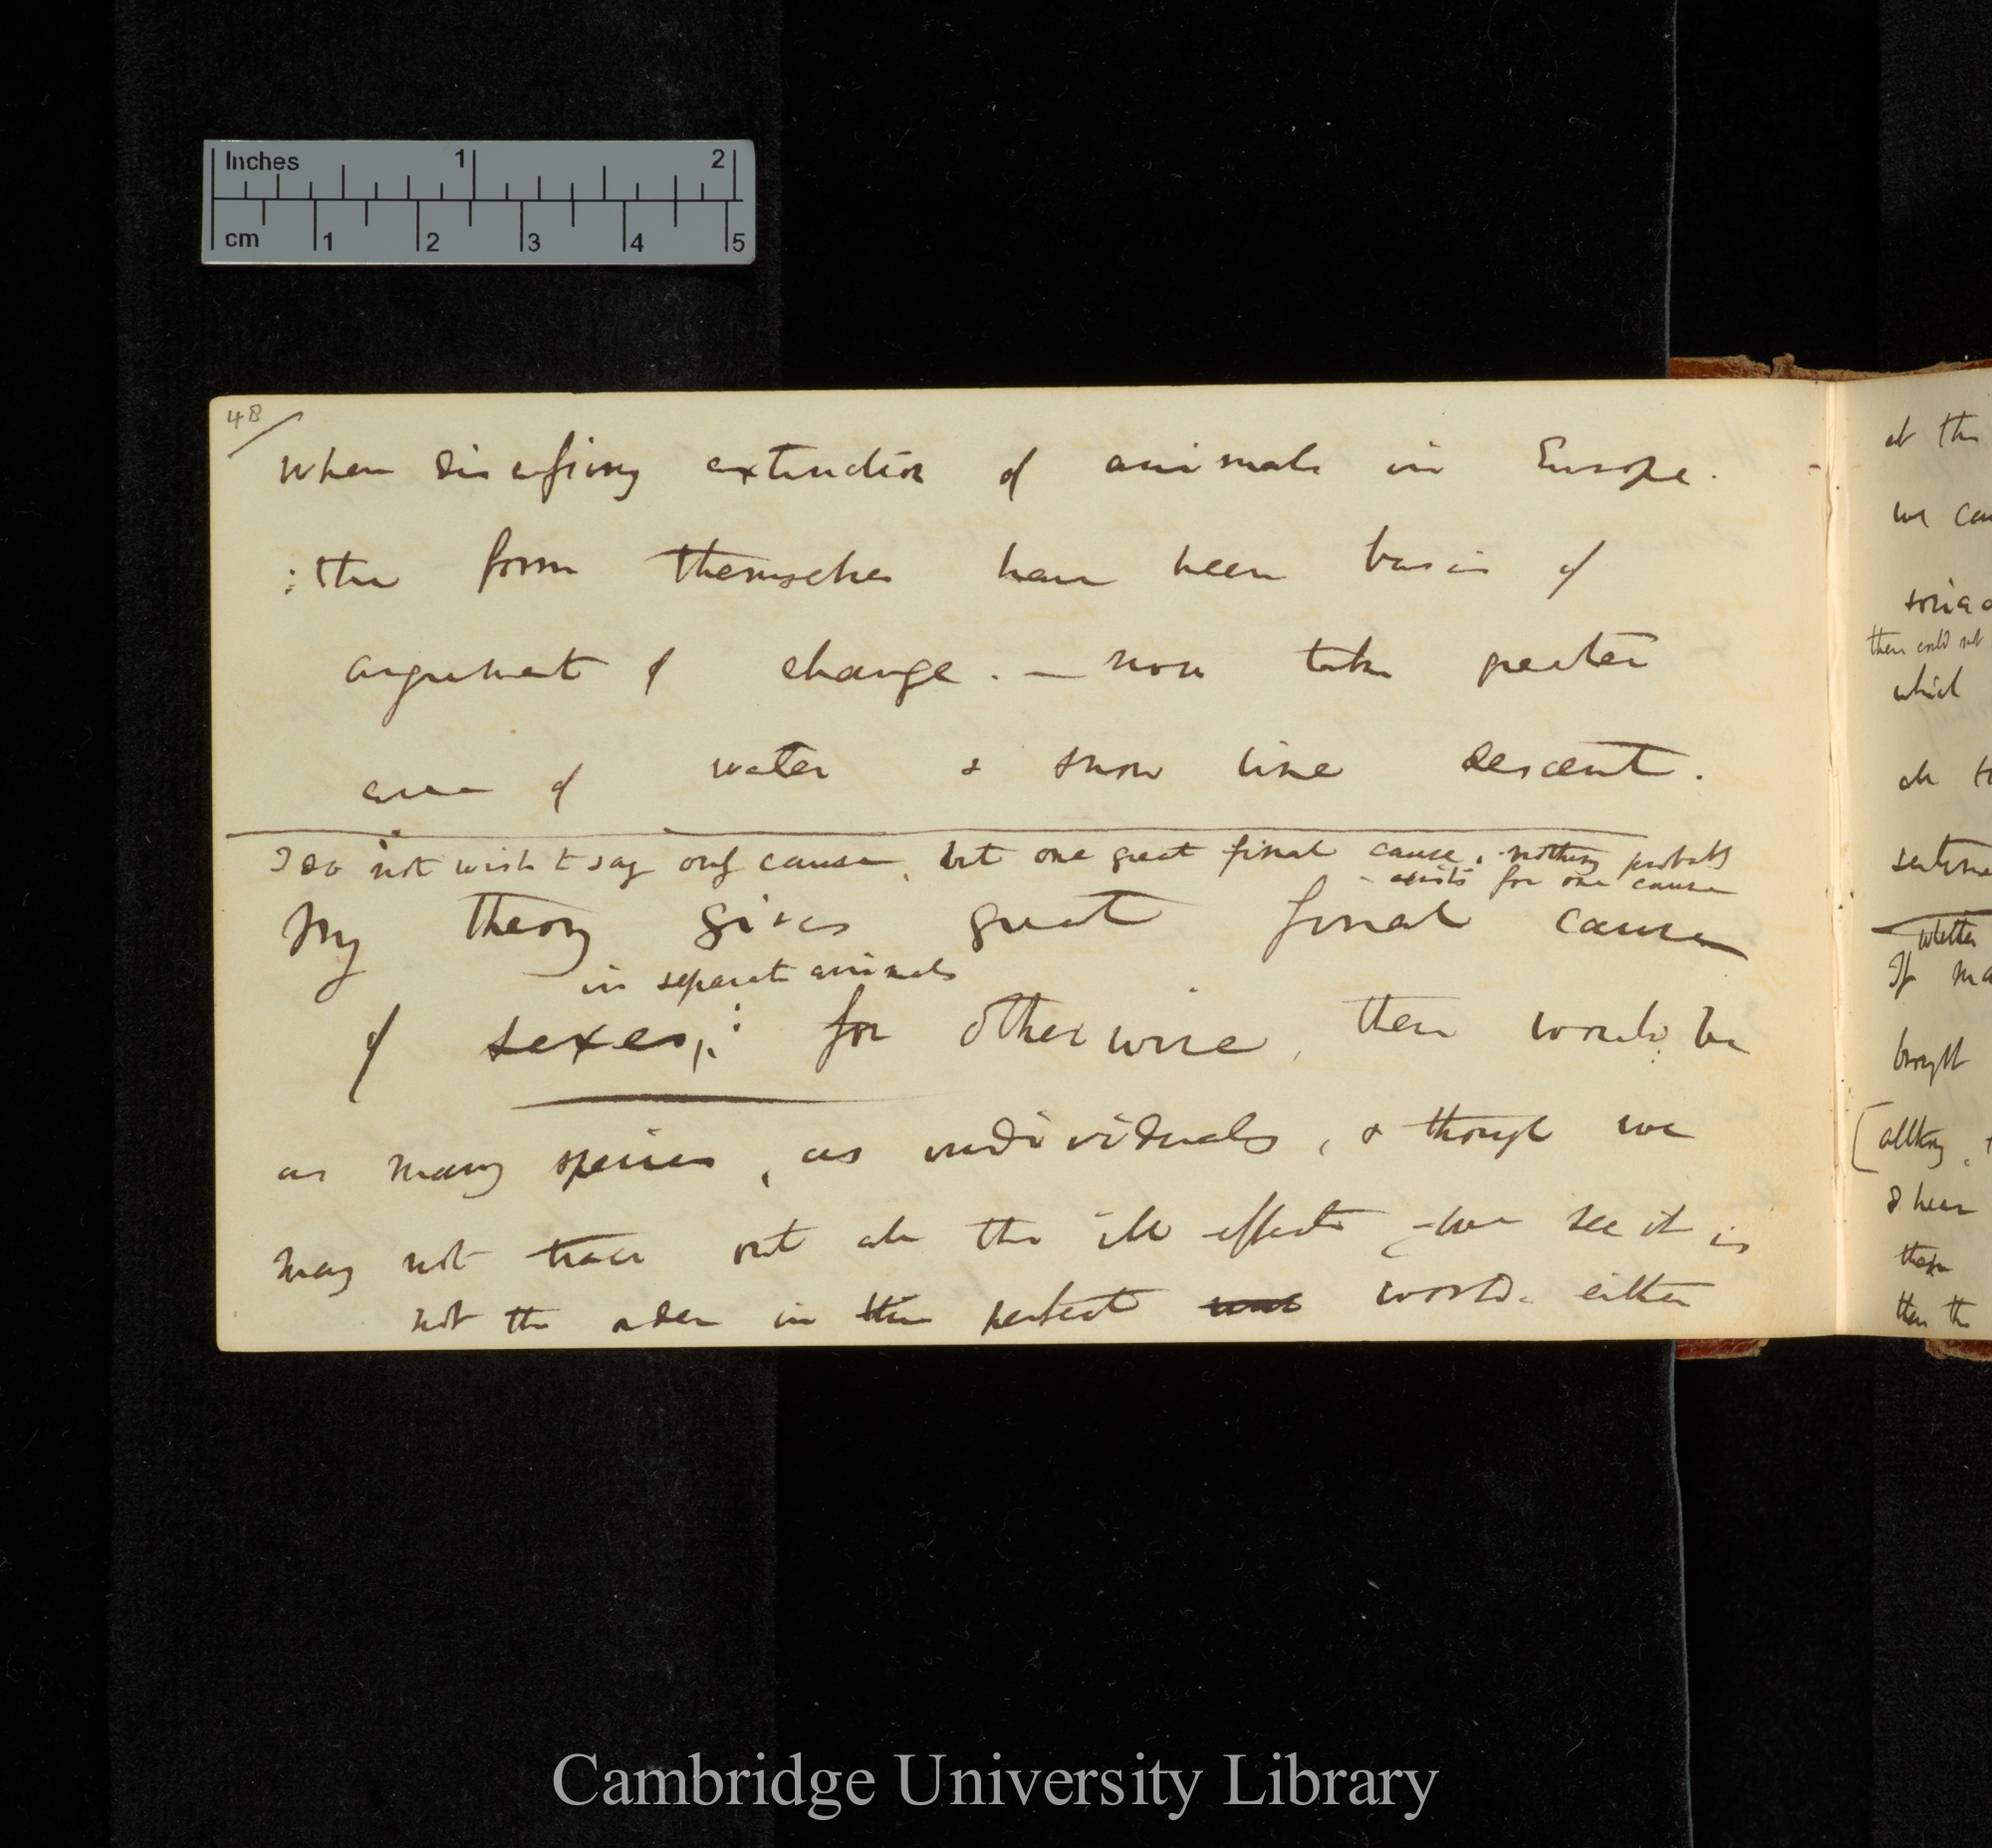 Inches 1 2
cm 1 2 3 4 5
48
When discussing extinction of animals in Europe.
: the forms themselves have been basis of
argument of change. — now take greater
area of water & snow line descent.
I do not wish to say only cause, but one great final cause, nothing probably
exists for one cause
My theory gives great final cause
in separate animals
of sexes,: for otherwise, there would be
as many species, as individuals, & though we
may not trace out all the ill effects, – we see it is
not the order in this perfect world, either
at the
we can
then could not
which
all
whether
If ma
brought
[although,
& hear
these
then the
Cambridge University Library